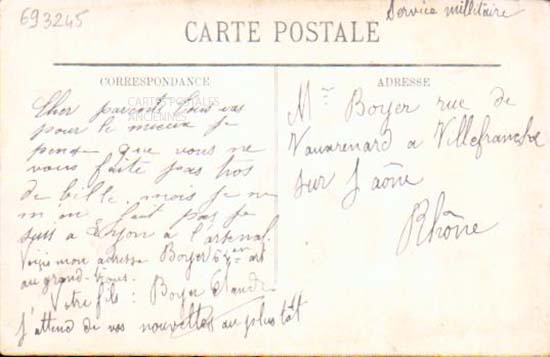 693245
Service millitaire
CARTE POSTALE
CORRESPONDANCE
CARTES POSTALES
ANCIENNES
Cher parents tout vas
pour le mieux je
pense que vous ne
vous faite pas tros
de bille mois je ne
m'en fait pas je
suis a Lyon a l'arsenal.
Voiçi mon adresse Boyer 6 art
au grand-trous.
Votre fils : Boyer Claude
J'attend de vos nouvelles au plus tôt
ADRESSE
Mr Boyer rue de
Vauxrenard a Villefranche
sur Saône
Rhône